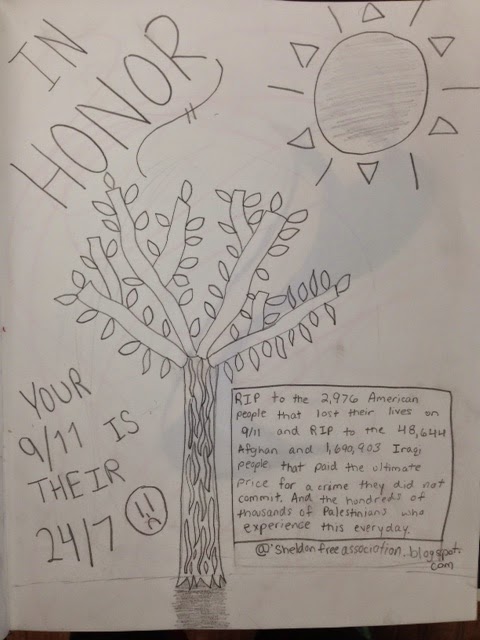 IN
HONOR
YOUR
9/11 IS
THEIR
24/7
RIP to the 2,976 American
people that lost their lives on
9/11 and RIP to the 48,644
Afghan and 1,690,903 Iraqi
people that paid the ultimate
price for a crime they did not
commit. And the hundreds of
thousands of Palestinians who
experience this everyday.
@ sheldonfreeassociation.blogspot.
com